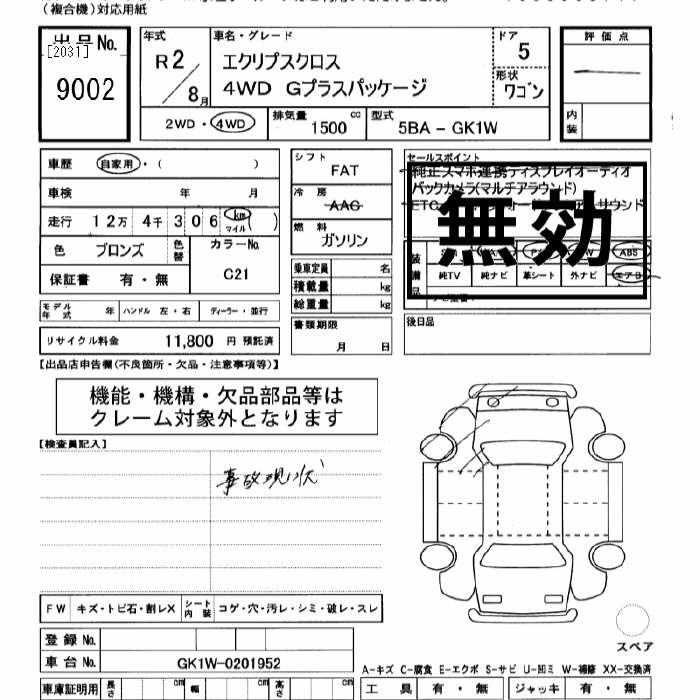 (複合機)対応用紙
出品No.
[2031]
9002
年式
R2/8月
車名・グレード
エクリプスクロス
4WD Gプラスパッケージ
ドア
5
形状
ワゴン
評価点
内装
2WD・4WD
排気量
1500 cc
型式
5BA - GK1W
車歴 自家用・( )
車検 年 月
走行 12万 4千 306 km マイル ( )
色 ブロンズ 色替
カラーNo.
C21
保証書 有・無
モデル年式 年 ハンドル 左・右 ディーラー・並行
リサイクル料金 11,800 円 預託済
シフト
FAT
冷房
AAC
燃料
ガソリン
乗車定員 名
積載量 kg
総重量 kg
書類期限
月 日
セールスポイント
純正スマホ連携ディスプレイオーディオ
バックカメラ(マルチアラウンド)
ETC
無効
装備品
ABS
純TV 純ナビ 革シート 外ナビ エアB
後日品
【出品店申告欄(不良箇所・欠品・注意事項等)】
機能・機構・欠品部品等は
クレーム対象外となります
【検査員記入】
事故現状
FW キズ・トビ石・割レX シート内装 コゲ・穴・汚レ・シミ・破レ・スレ
登録No.
車台No. GK1W-0201952
車庫証明用 長さ cm 幅 cm 高さ cm
スペア
A-キズ C-腐食 E-エクボ S-サビ U-凹ミ W-補修 XX-交換済
工具 有・無 ジャッキ 有・無